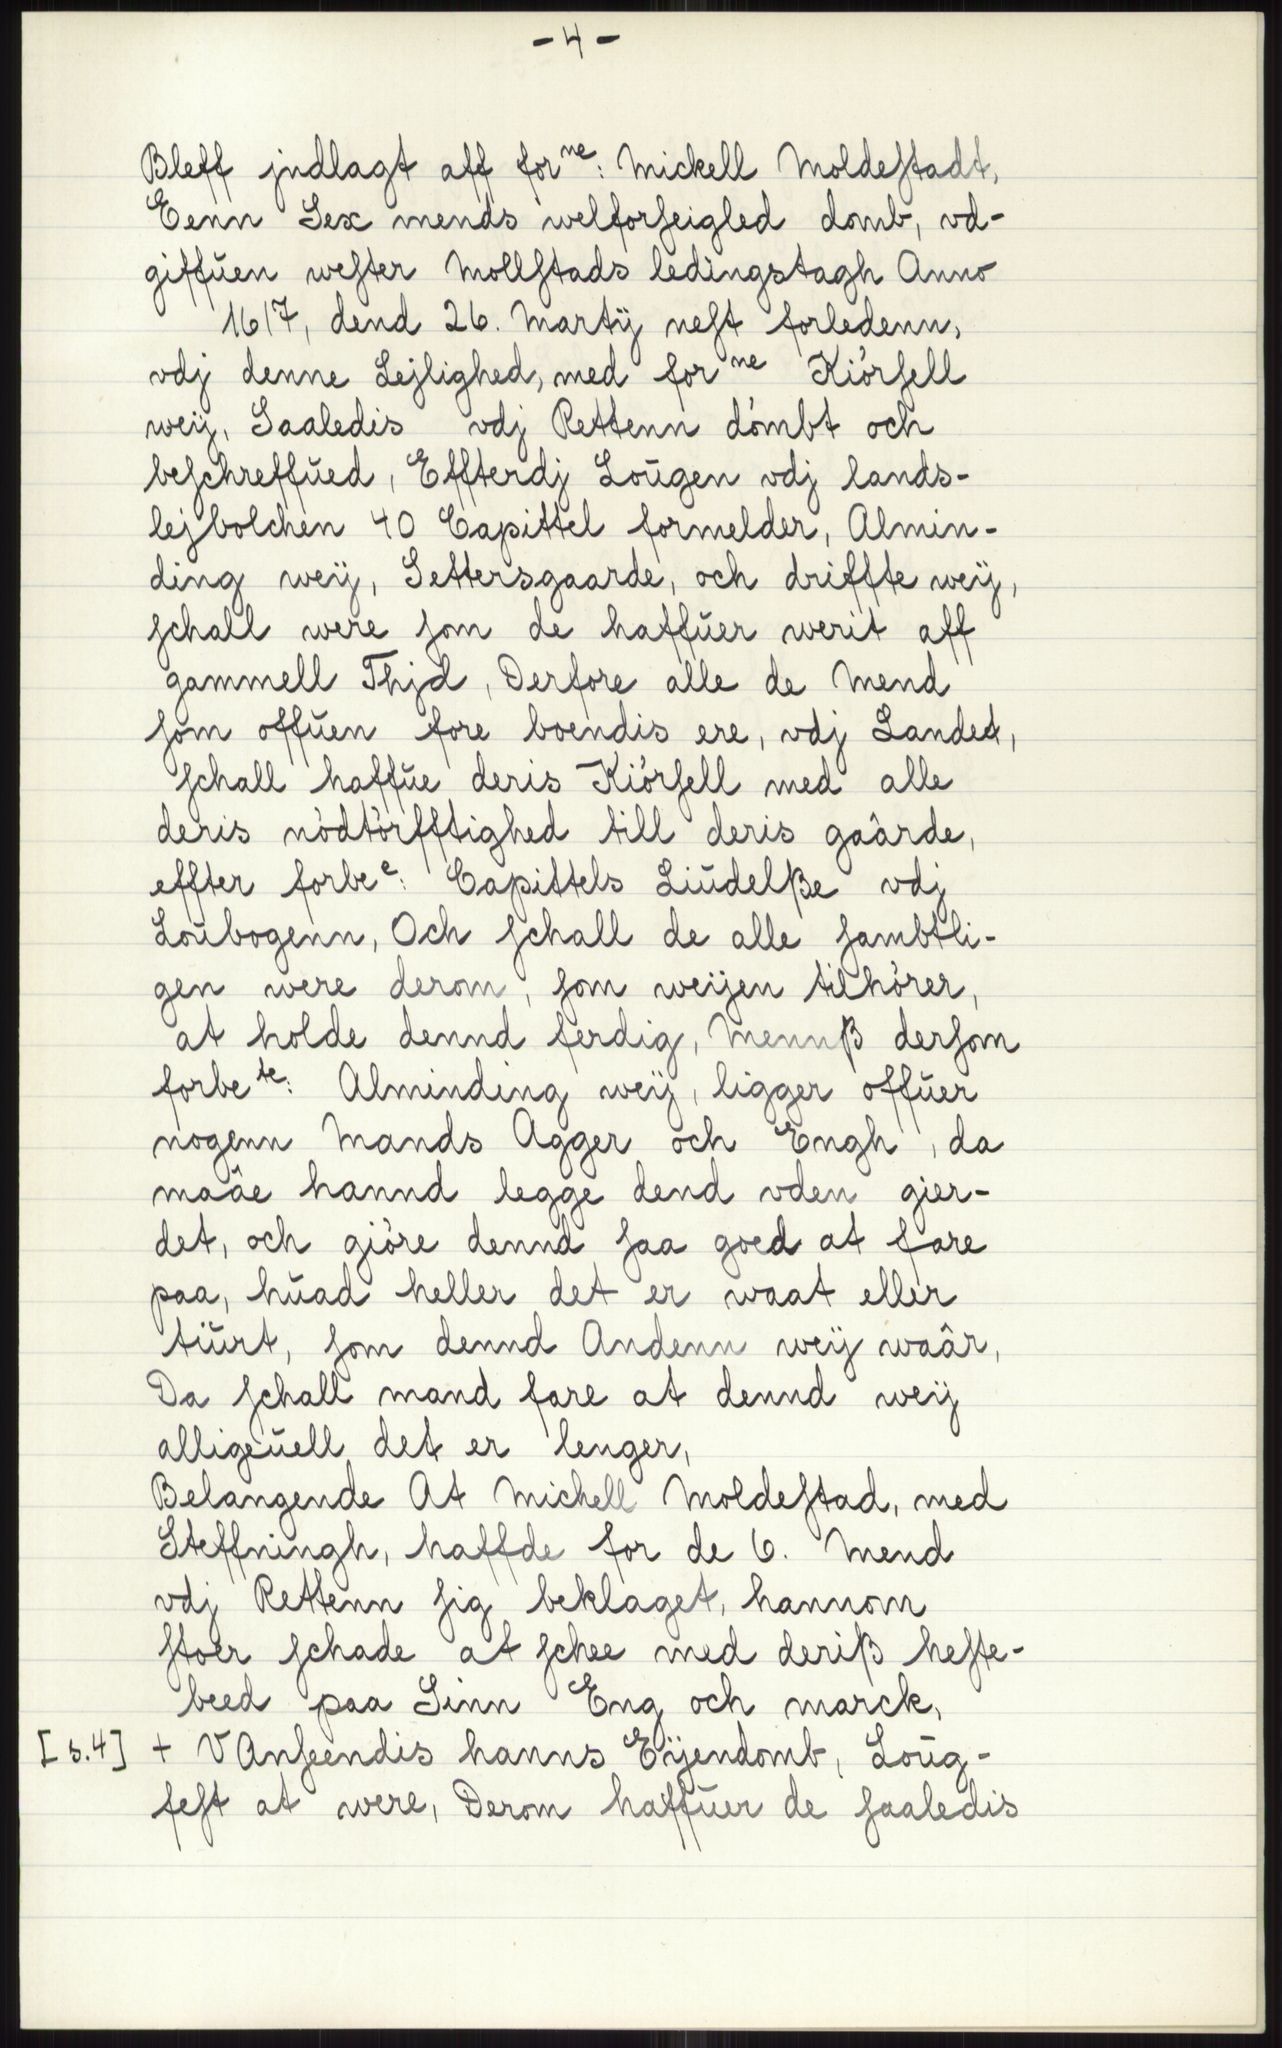 - 4 -
Bleff jndlagt aff for<sup>ne</sup>: Mickell Moldestadt,
Eenn Sex mends welforseigled domb, vd-
giffŭen wester Mollstads ledingstagh Anno
1617, dend 26. Martÿ nest forledenn,
vdj denne Lejlighed, med for<sup>ne</sup> Kiörsell
weÿ, Saaledis vdj Rettenn dömbt och
beschreffŭed, Effterdj Loŭgen vdj lands-
lejbolchen 40 Capittel formelder, Almin-
ding weÿ, Settersgaarde, och driffte weÿ,
schall were som de haffŭer werit aff
gammell Thjd, Derfore alle de Mend
som offŭen fore boendis ere, vdj Landet,
schall haffŭe deris Kiörsell med alle
deris nödtörfftighed till deris gaârde,
effter forbe<sup>e</sup>: Capittels Liŭdelße vdj
Loŭbogenn, Och schall de alle sambtli-
gen were derom, som weijen tilhörer,
at holde dennd ferdig, Mennß dersom
forbe<sup>te</sup>: Alminding weÿ, ligger offŭer
nogenn Mands Agger och Engh, da
maâe hannd legge dend vden gier-
det, och giöre dennd saa goed at fare
paa, hŭad heller det er waat eller
tiŭrt, som dennd Andenn weÿ waâr,
Da schall mand fare at dennd weÿ
alligeŭell det er lenger,
Belangende At Michell Moldestad, med
Steffningh, haffde for de 6. Mend
vdj Rettenn sig beklaget, hannom
stoer schade at schee med deriß heste-
beed paa Sinn Eng och marck,
[s.4] + VAnseendis hanns Eÿendomb, Loŭg-
fest at were, Derom haffŭer de saaledis